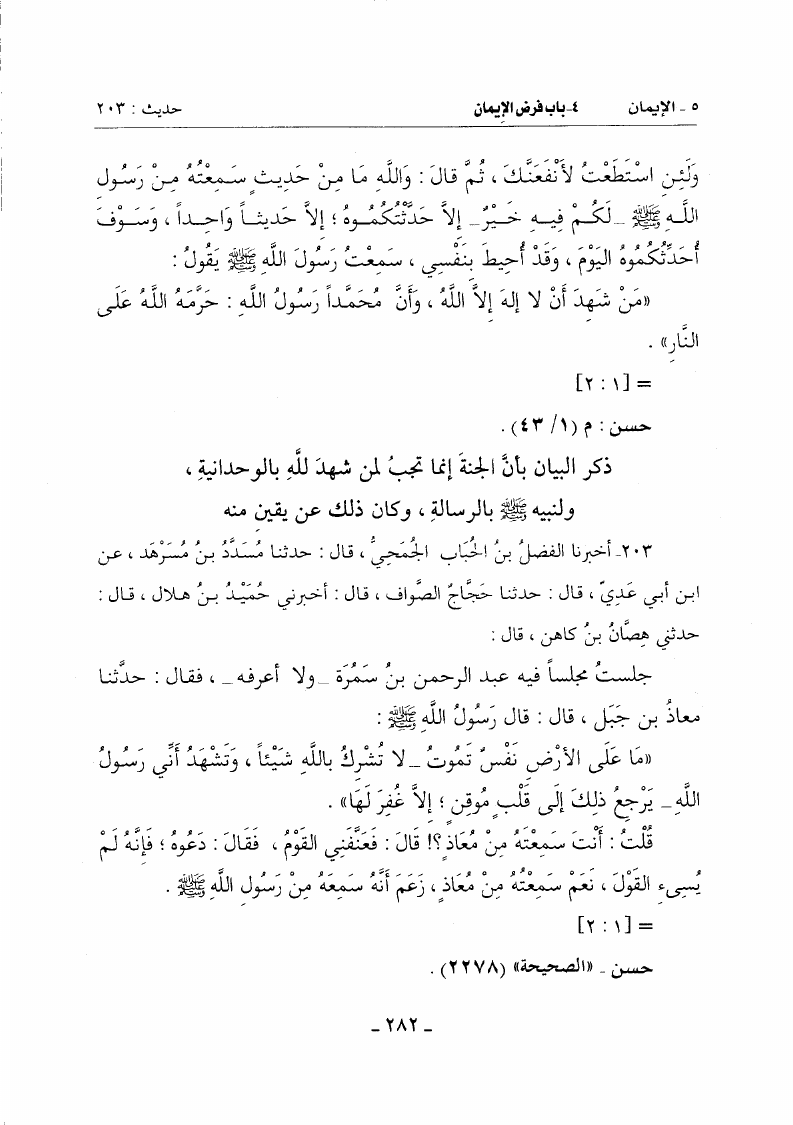 ٥ ـ الإيمان ٤ـ باب فرض الإيمان حديث : ٢٠٣
وَلَئِنِ اسْتَطَعْتُ لأَنْفَعَنَّكَ ، ثُمَّ قالَ : وَاللَّهِ مَا مِنْ حَدِيثٍ سَمِعْتُهُ مِنْ رَسُولِ
اللَّهِ ﷺ ـ لَكُمْ فِيهِ خَيْرٌ ـ إلاَّ حَدَّثْتُكُمُوهُ ؛ إلاَّ حَدِيثاً وَاحِداً ، وَسَوْفَ
أُحَدِّثُكُمُوهُ اليَوْمَ ، وَقَدْ أُحِيطَ بِنَفْسِي ، سَمِعْتُ رَسُولَ اللَّهِ ﷺ يَقُولُ :
«مَنْ شَهِدَ أَنْ لا إِلهَ إلاَّ اللَّهُ ، وَأَنَّ مُحَمَّداً رَسُولُ اللَّهِ : حَرَّمَهُ اللَّهُ عَلَى
النَّارِ» .
= [١ : ٢]
حسن : م (١/ ٤٣) .
ذكر البيان بأنَّ الجنةَ إنما تجبُ لمن شهدَ للَّهِ بالوحدانيةِ ،
ولنبيه ﷺ بالرسالةِ ، وكان ذلك عن يقينٍ منه
٢٠٣ـ أخبرنا الفضلُ بنُ الحُبَابِ الجُمَحِيُّ ، قال : حدثنا مُسَدَّدُ بنُ مُسَرْهَدٍ ، عن
ابنِ أبي عَدِيّ ، قال : حدثنا حَجَّاجٌ الصَّواف ، قال : أخبرني حُمَيْدُ بنُ هلال ، قال :
حدثني هِصَّانُ بنُ كاهن ، قال :
جلستُ مجلساً فيه عبد الرحمن بنُ سَمُرَةَ ـ ولا أعرفه ـ ، فقال : حدَّثنا
معاذُ بن جَبَلٍ ، قال : قال رَسُولُ اللَّهِ ﷺ :
«مَا عَلَى الأَرْضِ نَفْسٌ تَمُوتُ ـ لا تُشْرِكُ بِاللَّهِ شَيْئاً ، وَتَشْهَدُ أَنِّي رَسُولُ
اللَّهِ ـ يَرْجِعُ ذلِكَ إلَى قَلْبٍ مُوقِنٍ ؛ إلاَّ غُفِرَ لَهَا» .
قُلْتُ : أَنْتَ سَمِعْتَهُ مِنْ مُعَاذٍ ؟! قَالَ : فَعَنَّفَنِي القَوْمُ ، فَقَالَ : دَعُوهُ ؛ فَإِنَّهُ لَمْ
يُسِيءِ القَوْلَ ، نَعَمْ سَمِعْتُهُ مِنْ مُعَاذٍ ، زَعَمَ أَنَّهُ سَمِعَهُ مِنْ رَسُولِ اللَّهِ ﷺ .
= [١ : ٢]
حسن ـ «الصحيحة» (٢٢٧٨) .
ـ ٢٨٢ ـ